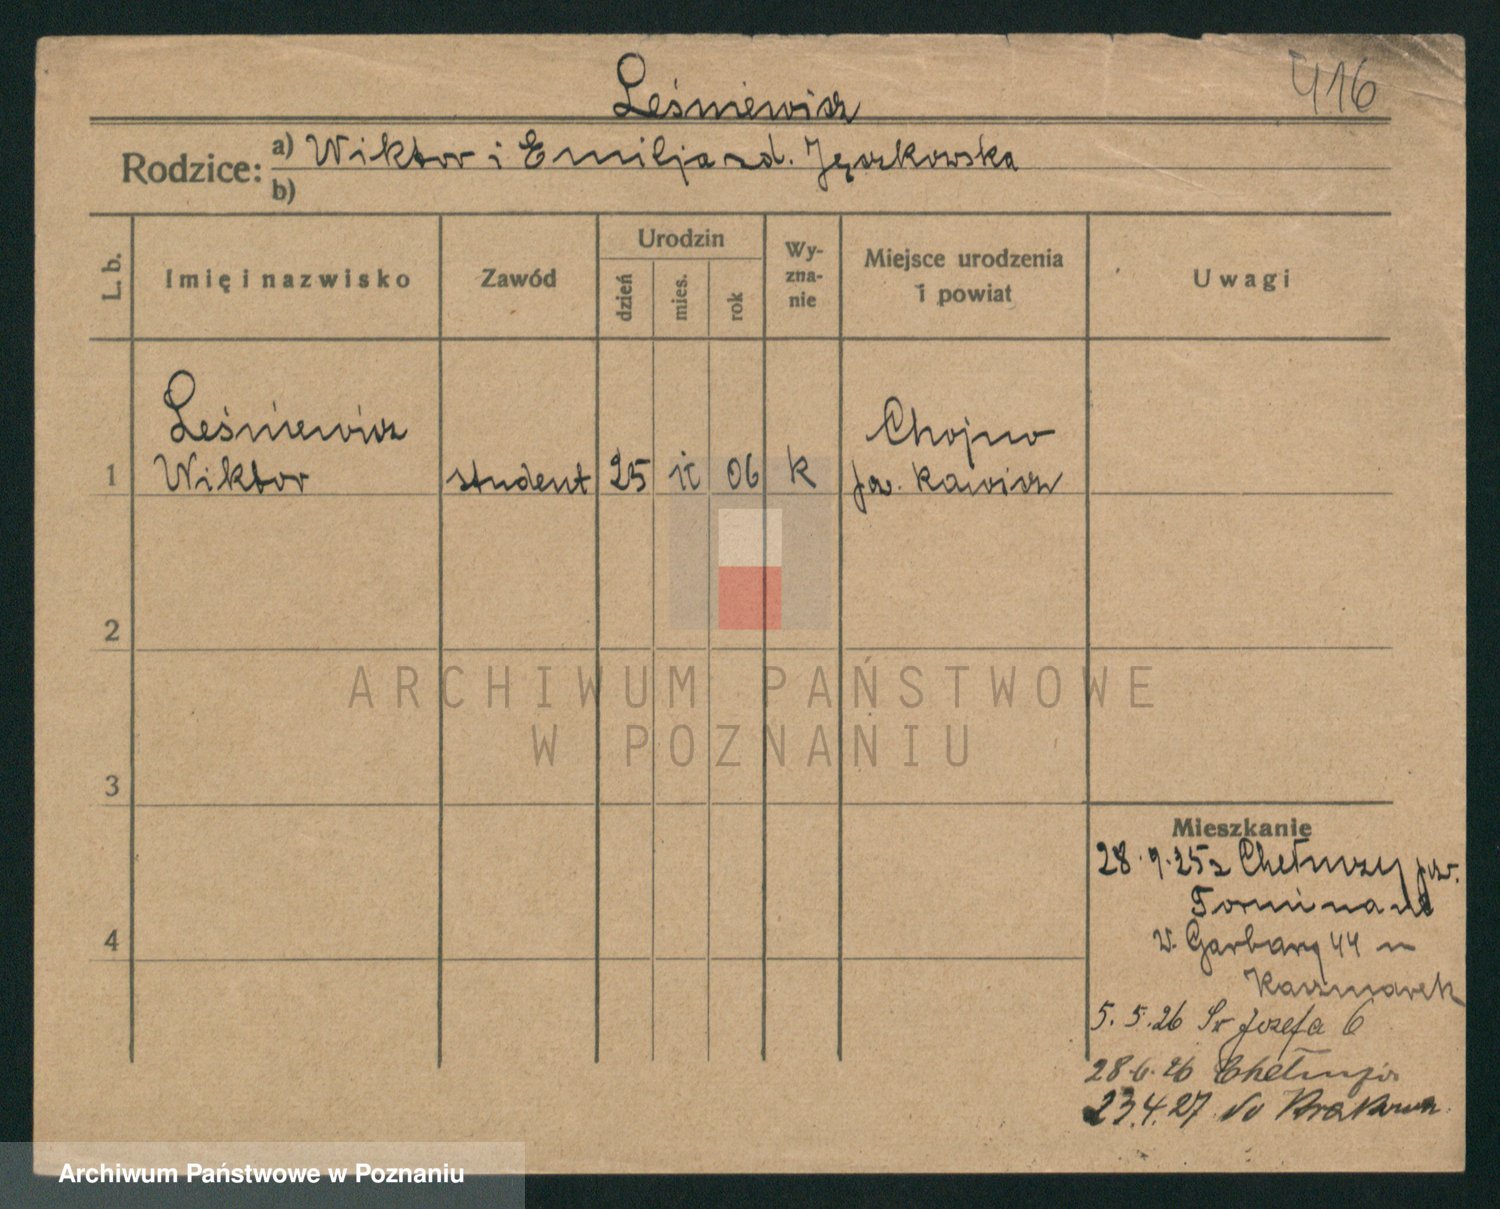 416
Leśniewicz
Rodzice:
a) Wiktor i Emilja zd.
b)
L. b.
Imię i nazwisko
Zawód
Urodzin
dzień
mies.
rok
Wy-
zna-
nie
Miejsce urodzenia
i powiat
Uwagi
Leśniewicz
Wiktor
1
student
25
II
06
k
Chojno
pow. Rawicz
2
3
4
Mieszkanie
28.9.25 z Chełmży pow.
w. Garbary 44 u
Kaczmarek
5.5.26 Św Józefa 6
28.6.26 Chełmża
23.4.27 do Krakowa
ARCHIWUM PAŃSTWOWE
W POZNANIU
Archiwum Państwowe w Poznaniu